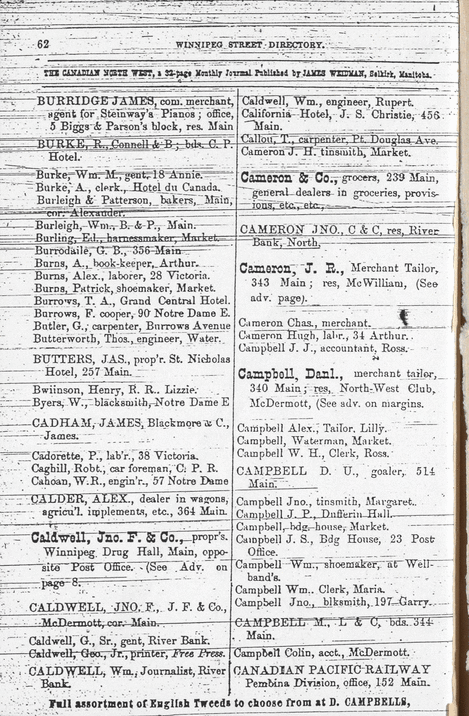 62
WINNIPEG STREET DIRECTORY.
THE CANADIAN NORTH WEST, a 32-page Monthly Journal Published by JAMES WEIDMAN, Selkirk, Manitoba.
BURRIDGE JAMES, com. merchant,
agent for Steinway's Pianos; office,
5 Biggs & Parson's block, res. Main
BURKE, R., Connell & B; bds. C. P.
Hotel.
Burke, Wm. M., gent, 18 Annie.
Burke, A., clerk, Hotel du Canada.
Burleigh & Patterson, bakers, Main,
cor. Alexander.
Burleigh, Wm., B. & P., Main.
Burling, Ed., harnessmaker, Market.
Burrodaile, G. B., 356 Main
Burns, A., book-keeper, Arthur.
Burns, Alex., laborer, 28 Victoria.
Burns, Patrick, shoemaker, Market.
Burrows, T. A., Grand Central Hotel.
Burrows, F. cooper, 90 Notre Dame E.
Butler, G., carpenter, Burrows Avenue
Butterworth, Thos., engineer, Water.
BUTTERS, JAS., prop'r. St. Nicholas
Hotel, 257 Main.
Bwiinson, Henry, R. R., Lizzie.
Byers, W., blacksmith, Notre Dame E
CADHAM, JAMES, Blackmore & C.,
James.
Cadorette, P., lab'r., 38 Victoria.
Caghill, Robt., car foreman, C. P. R.
Cahoan, W.R., engin'r., 57 Notre Dame
CALDER, ALEX., dealer in wagons,
agricu'l. implements, etc., 364 Main.
Caldwell, Jno. F. & Co., propr's.
Winnipeg Drug Hall, Main, oppo-
site Post Office. (See Adv. on
page 8.
CALDWELL, JNO. F., J. F. & Co.,
McDermott, cor. Main.
Caldwell, G., Sr., gent, River Bank.
Caldwell, Geo., Jr., printer, Free Press.
CALDWELL, Wm., Journalist, River
Bank.
Caldwell, Wm., engineer, Rupert.
California Hotel, J. S. Christie, 456
Main.
Callou, T., carpenter, Pt. Douglas Ave.
Cameron J. H. tinsmith, Market.
Cameron & Co., grocers, 239 Main,
general dealers in groceries, provis-
ions, etc., etc.
CAMERON JNO., C & C, res, River
Bank, North.
Cameron, J. R., Merchant Tailor,
343 Main; res, McWilliam, (See
adv. page).
Cameron Chas., merchant.
Cameron Hugh, labr., 34 Arthur.
Campbell J. J., accountant, Ross.
Campboll, Danl., merchant tailor,
340 Main; res, North-West Club,
McDermott, (See adv. on margins.
Campbell Alex., Tailor, Lilly.
Campbell, Waterman, Market.
Campbell W. H., Clerk, Ross.
CAMPBELL D. U., goaler, 514
Main.
Campbell Jno., tinsmith, Margaret.
Campbell J. P., Dufferin Hall.
Campbell, bdg. house, Market.
Canpbell J. S., Bdg House, 23 Post
Office.
Campbell Wm., shoemaker, at Well-
band's.
Campbell Wm., Clerk, Maria.
Campbell Jno., blksmith, 197 Garry.
CAMPBELL M., L & C, bds. 344
Main.
Campbell Colin, acct., McDermott.
CANADIAN PACIFIC RAILWAY
Pembina Division, office, 152 Main.
Full assortment of English Tweeds to choose from at D. CAMPBELLS,